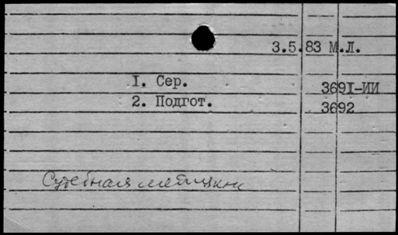 3.5.83 М.Л.
1. Сер. 3691-ИИ
2. Подгот. 3692
Судебная медицина